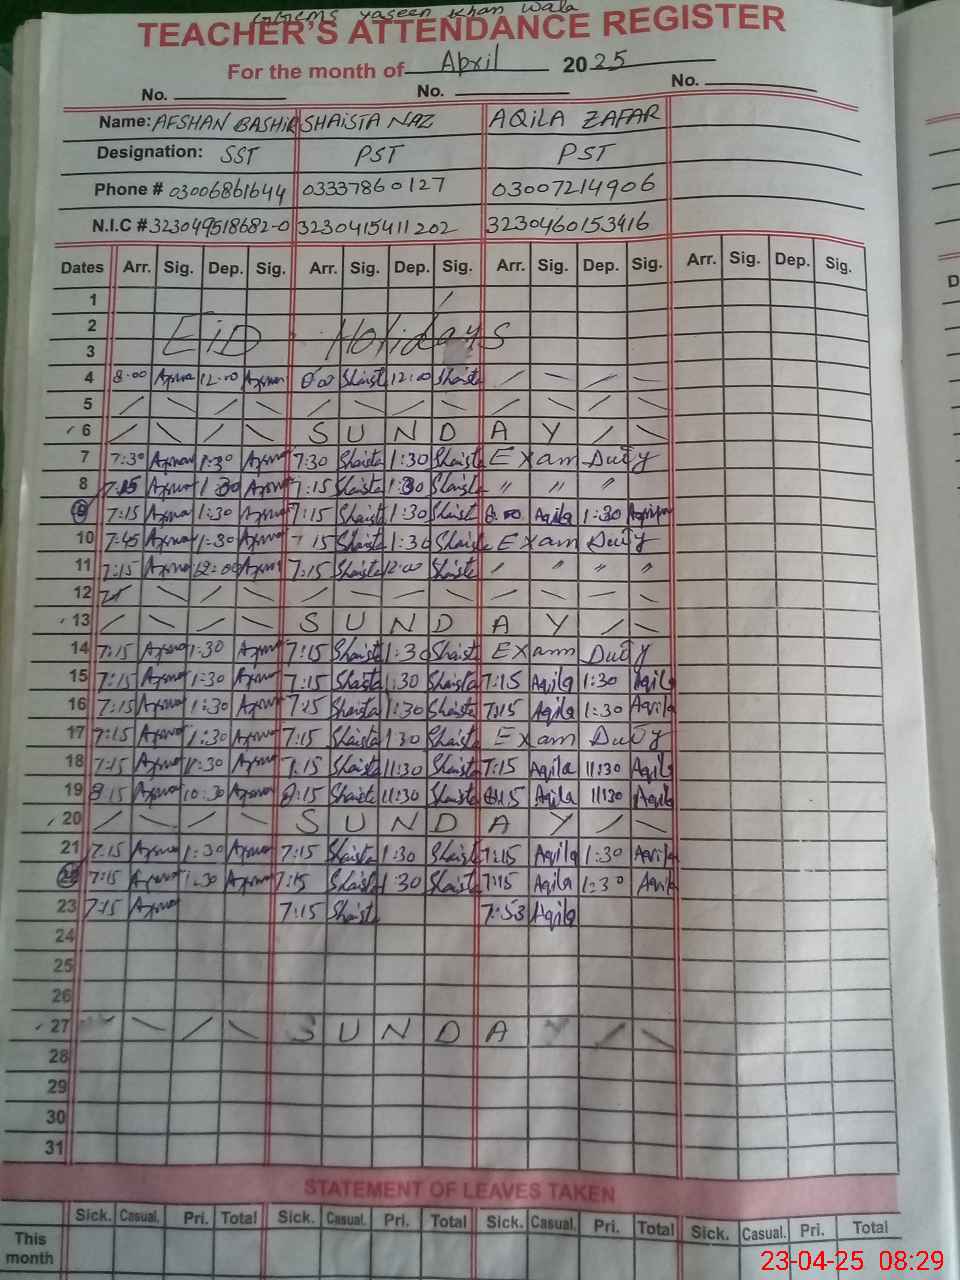 GGCMS Yaseen Khan Wala
TEACHER'S ATTENDANCE REGISTER
For the month of April 2025
No. No. No.
Name: AFSHAN BASHIR SHAISTA NAZ AQILA ZAFAR
Designation: SST PST PST
Phone # 03006861644 03337860127 03007214906
N.I.C # 323049518682-0 3230415411202 3230460153416
Dates Arr. Sig. Dep. Sig. Arr. Sig. Dep. Sig. Arr. Sig. Dep. Sig. Arr. Sig. Dep. Sig.
1
2 EID Holidays
3
4 8:00 12:00 8:00 Shaista 12:00 Shaista
5
6 SUNDAY
7 7:30 1:30 7:30 Shaista 1:30 Shaista Exam Duty
8 7:15 1:30 7:15 Shaista 1:30 Shaista " " "
9 7:15 1:30 7:15 Shaista 1:30 Shaista 8:00 Aqila 1:30
10 7:45 1:30 7:15 Shaista 1:30 Shaista Exam Duty
11 7:15 12:00 7:15 Shaista 12:00 Shaista " " " "
12
13 SUNDAY
14 7:15 1:30 7:15 Shaista 1:30 Shaista Exam Duty
15 7:15 1:30 7:15 Shaista 1:30 Shaista 7:15 Aqila 1:30 Aqila
16 7:15 1:30 7:15 Shaista 1:30 Shaista 7:15 Aqila 1:30 Aqila
17 7:15 1:30 7:15 Shaista 1:30 Shaista Exam Duty
18 7:15 11:30 7:15 Shaista 11:30 Shaista 7:15 Aqila 11:30 Aqila
19 8:15 10:30 8:15 Shaista 11:30 Shaista 8:15 Aqila 11:30 Aqila
20 SUNDAY
21 7:15 1:30 7:15 Shaista 1:30 Shaista 7:15 Aqila 1:30 Aqila
22 7:15 1:30 7:15 Shaista 1:30 Shaista 7:15 Aqila 1:30 Aqila
23 7:15 7:15 Shaista 7:53 Aqila
24
25
26
27 SUNDAY
28
29
30
31
STATEMENT OF LEAVES TAKEN
Sick. Casual. Pri. Total Sick. Casual. Pri. Total Sick. Casual. Pri. Total Sick. Casual. Pri. Total
This month
23-04-25 08:29